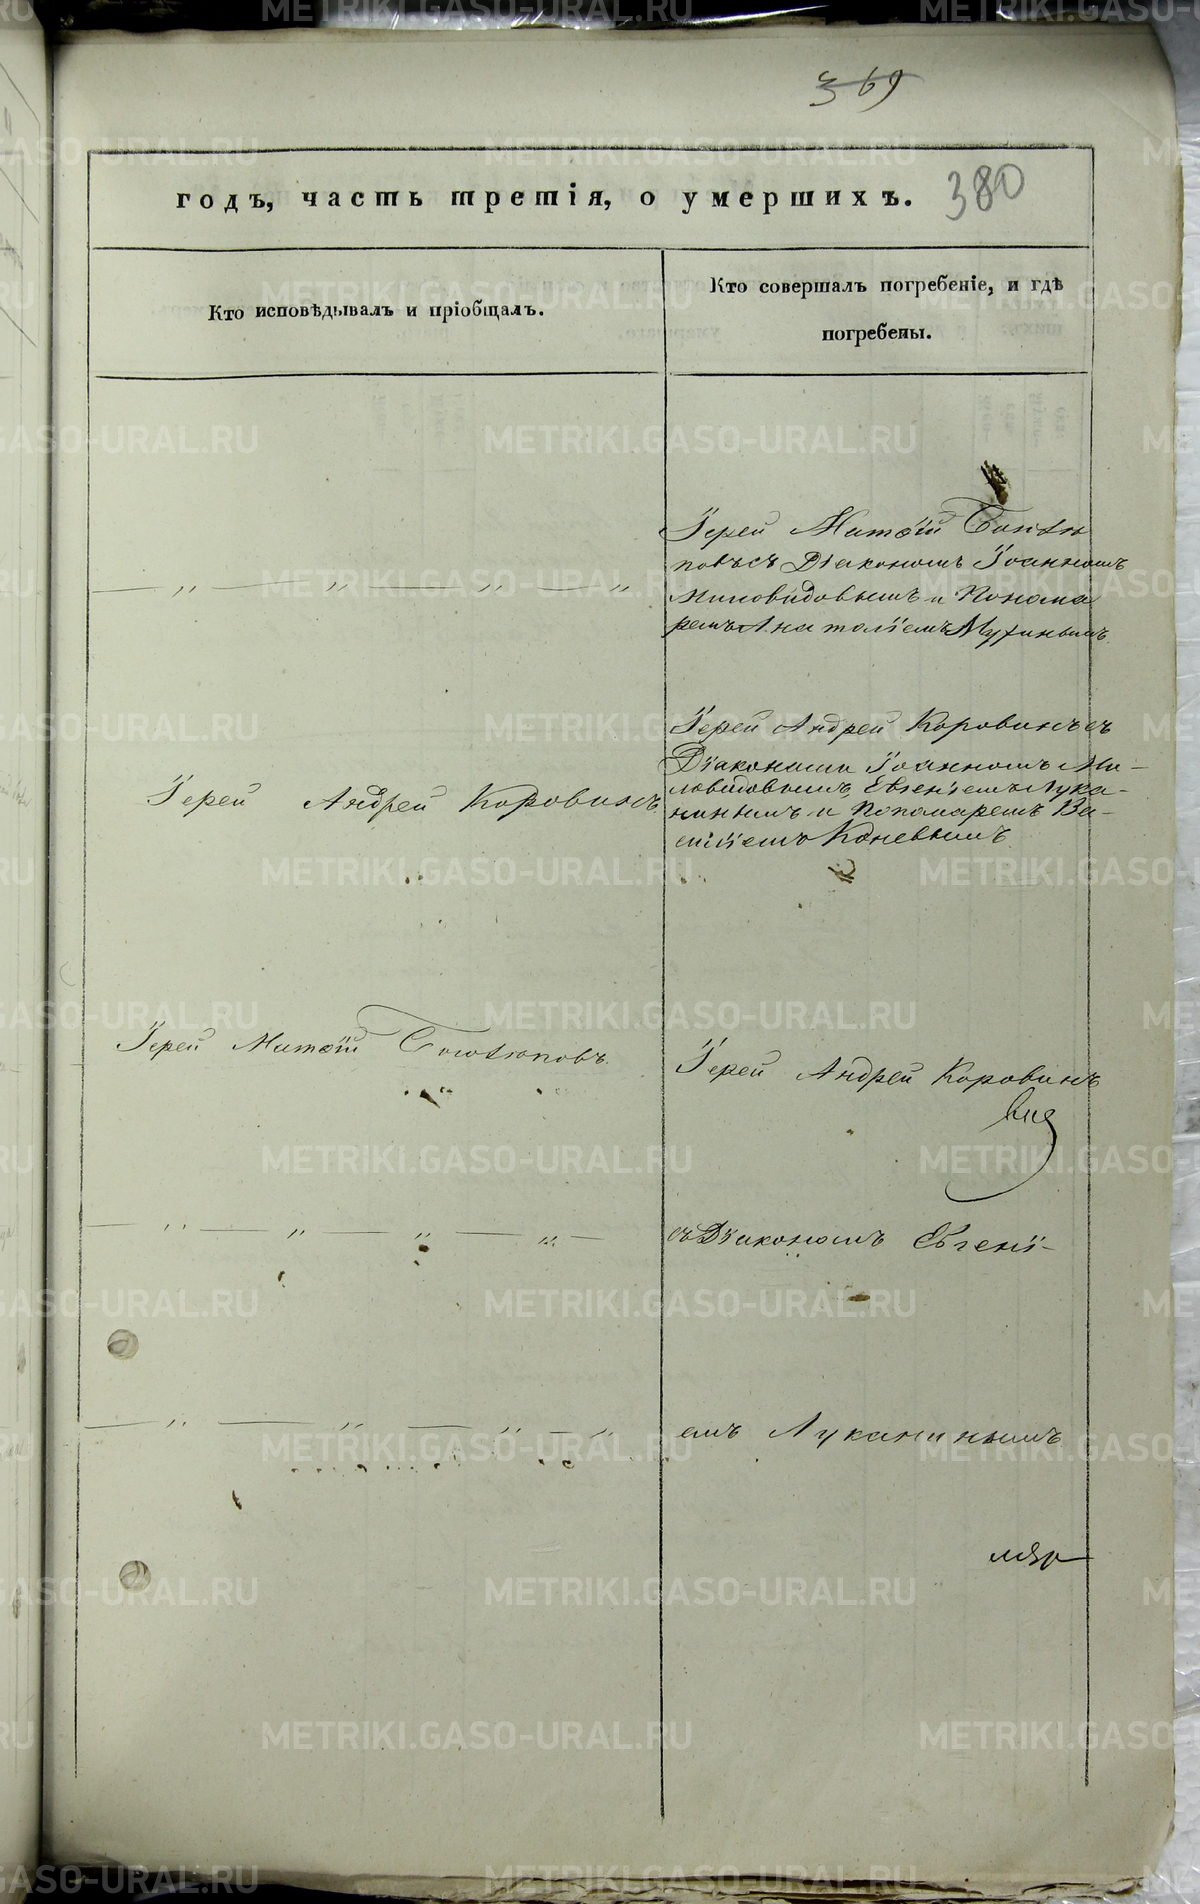 369
380
годъ, часть третія, о умершихъ.
Кто исповѣдывалъ и пріобщалъ.
Кто совершалъ погребеніе, и гдѣ
погребены.
Іерей Матѳій
повъ съ Діакономъ Іоанномъ
Миловидовымъ и Понома
ремъ Анатоліемъ Мухинымъ.
— „ — „ — „ — „
Іерей Андрей Коровинъ
Іерей Андрей Коровинъ съ
Діаконами Іоанномъ Ми-
ловидовымъ, Евгеніемъ Лука-
нинымъ и Пономаремъ Ва-
Коневымъ
Іерей Матѳій
Іерей Андрей Коровинъ
— „ — „ — „ — „ —
съ Діакономъ Евгені-
— „ — „ — „ — „
емъ Луканинымъ
METRIKI.GASO-URAL.RU